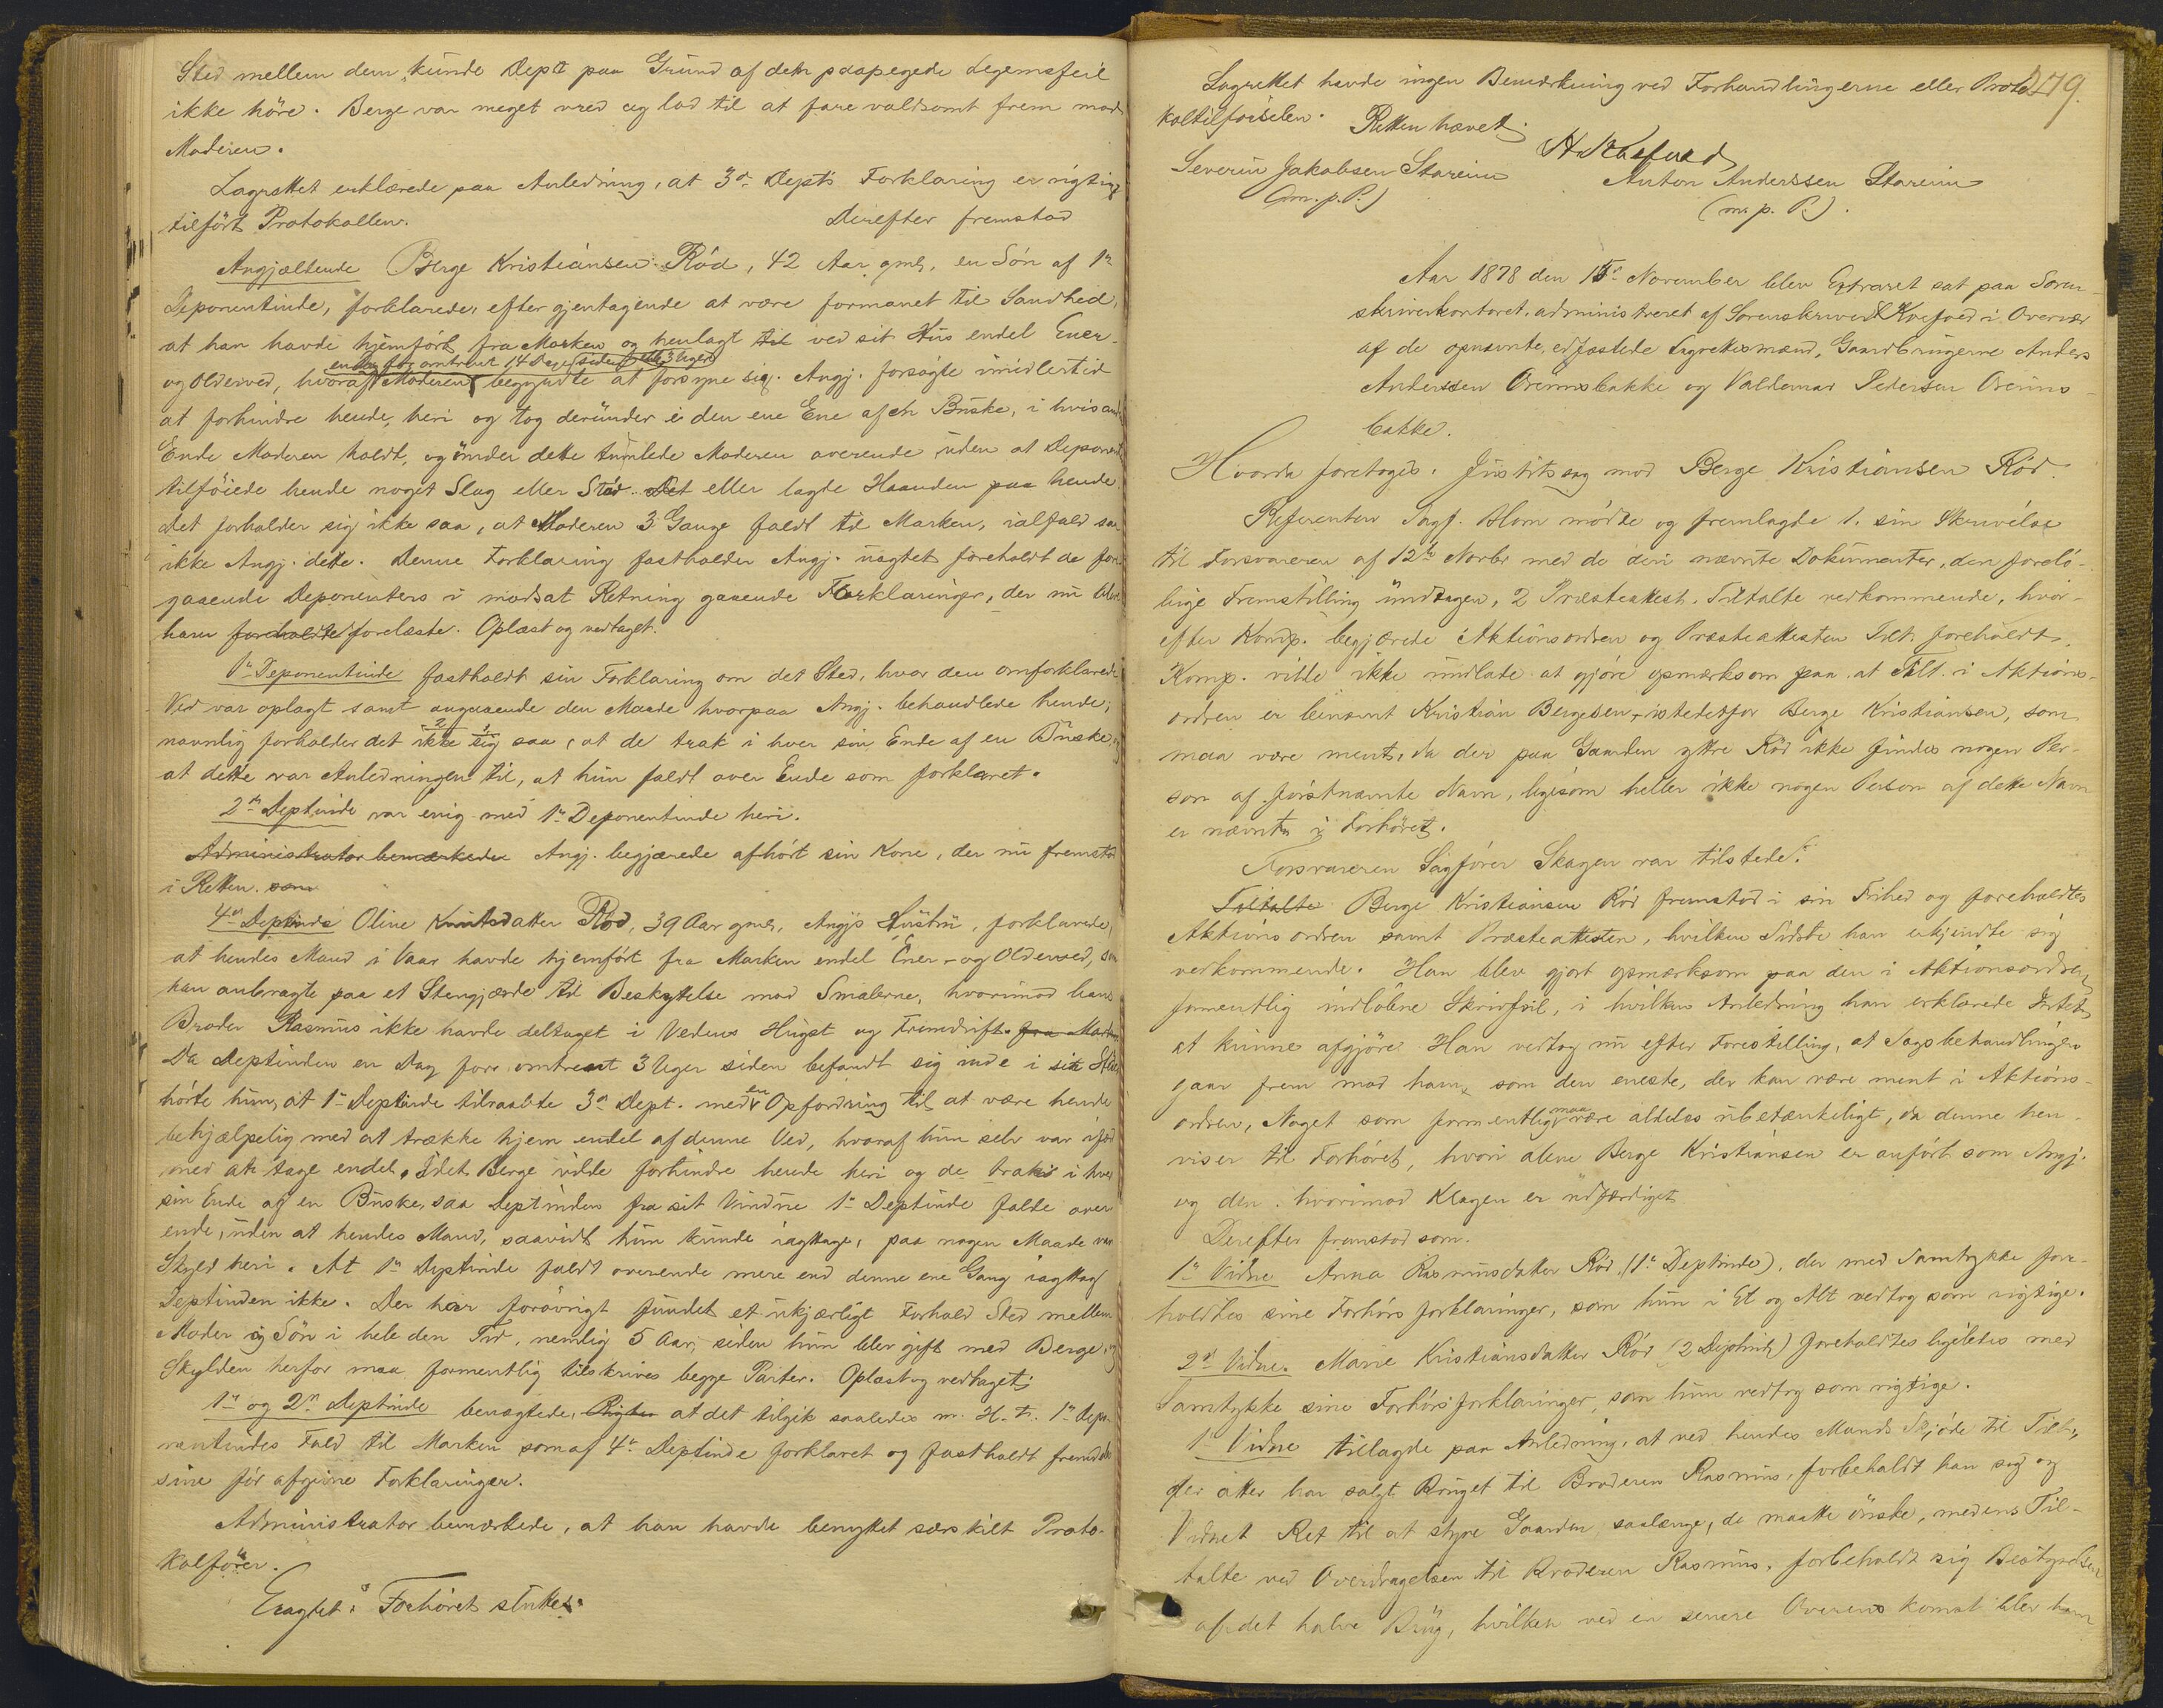 Sted mellem dem kunde Dept paa Grund af den paapegede Legemsfeil
ikke höre. Berge var meget vred og lod til at fare voldsomt frem mod
Moderen.
Lagrettet erklærede paa Anledning, at 3die Depts Forklaring er rigtig
tilfört Protokollen. Derefter fremstod
Angjældende Berge Kristiansen Röd, 42 Aar gml, en Sön af 1ste
Deponentinde, forklarede, efter gjentagende at være formanet til Sandhed,
at han havde hjemfört fra Marken og henlagt til ved sit Hus endel Ener-
en Dag for omtrent 14 Dage siden eller 3 Uger
og Olderved, hvoraf Moderen begyndte at forsyne sig. Angj. forsögte imidlertid
at forhindre hende heri og tog derunder i den ene Ene af en Buske, i hvis anden
Ende Moderen holdt, og under dette tumlede Moderen overende uden at Deponent
tilföiede hende noget Slag eller Stöd. Det eller lagde Haanden paa hende.
Det forholder sig ikke saa, at Moderen 3 Gange faldt til Marken, ialfald saa
ikke Angj. dette. Denne Forklaring fastholder Angj. uagtet foreholdt de fore-
gaaende Deponenters i modsat Retning gaaende Forklaringer, der nu blev
ham foreholdte forelæste. Oplæst og vedtaget.
1ste Deponentinde fastholdt sin Forklaring om det Sted, hvor den omforklarede
Ved var oplagt samt angaaende den Maade hvorpaa Angj. behandlede hende;
2 1
navnlig forholder det ikke sig saa, at de trak i hver sin Ende af en Buske, og
at dette var Anledningen til, at hun faldt over Ende som forklaret.
2den Deptinde var enig med 1ste Deponentinde heri.
Administrator bemærkede Angj. begjærede afhört sin Kone, der nu fremstod
i Retten. som
4de Deptinde Oline Knutsdatter Röd, 39 Aar gml, Angjs Hustru, forklarede,
at hendes Mand i Vaar havde hjemfört fra Marken endel Ener- og Olderved, som
han anbragte paa et Stengjærde til Beskyttelse mod Smalerne, hvorimod hans
Broder Rasmus ikke havde deltaget i Vedens Hugst og Fremdrift. fra Marken
Da Deptinden en Dag for omtrent 3 Uger siden befandt sig inde i sit
hörte hun, at 1ste Deptinde tilraabte 3die Dept. med en Opfordring til at være hende
behjælpelig med at trække hjem endel af denne Ved, hvoraf hun selv var ifærd
med at tage endel. Idet Berge vilde forhindre hende heri og de trak i hver
sin Ende af en Buske, saa Deptinden fra sit Vindue 1ste Deptinde falde over
ende, uden at hendes Mand, saavidt hun kunde iagttage, paa nogen Maade var
Skyld heri. At 1ste Deptinde faldt overende mere end denne ene Gang iagttog
Deptinden ikke. Der har forövrigt fundet et ukjærligt Forhold Sted mellem
Moder og Sön i hele den Tid, nemlig 5 Aar, siden hun blev gift med Berge, og
Skylden herfor maa formentlig tilskrives begge Parter. Oplæst og vedtaget.
1ste og 2den Deptinde benægtede, at det tilgik saaledes m. H. t. 1ste Depo-
nentindes Fald til Marken som af 4de Deptinde forklaret og fastholdt fremdeles
sine för afgivne Forklaringer.
Administrator bemærkede, at han havde benyttet særskilt Proto-
kolförer.
Eragtet: Forhöret sluttet.
279.
Lagrettet havde ingen Bemærkning ved Forhandlingerne eller Proto-
koltilförselen. Retten hævet.
Severin Jakobsen Stareim
(m. p. P.)
Anton Anderssen Stareim
(m. p. P.).
Aar 1878 den 15de November blev Extraret sat paa Soren-
skriverkontoret, administreret af Sorenskriver Koefoed i Overvær
af de opnævnte, edfæstede Lagrettesmænd, Gaardbrugerne Anders
Anderssen Oreimsbakke og Valdemar Pedersen Oreims-
bakke.
Hvorda foretoges. Justitssag mod Berge Kristiansen Röd.
Referenten Sagf. Blom mödte og fremlagde 1. sin Skrivelse
til Forsvareren af 12te Novbr med de deri nævnte Dokumenter, den forelö-
bige Fremstilling undtagen, 2 Præsteattest. Tiltalte vedkommende, hvor-
efter Komp. begjærede Aktionsordren og Præsteattesten Tilt. foreholdt.
Komp. vilde ikke undlate at gjöre opmærksom paa at Tilt. i Aktions-
ordren er benævnt Kristian Bergesen, istedetfor Berge Kristiansen, som
maa være ment, da der paa Gaarden ytre Röd ikke findes nogen Per-
son af förstnævnte Navn, ligesom heller ikke nogen Person af dette Navn
er nævnt i Forhöret.
Forsvareren Sagförer Skagen var tilstede.
Tiltalte Berge Kristiansen Röd fremstod i sin Frihed og foreholdtes
Aktionsordren samt Præsteattesten, hvilken Sidste han erkjendte sig
vedkommende. Han blev gjort opmærksom paa den i Aktionsordren
formentlig indlöbne Skrivfeil, i hvilken Anledning han erklærede Intet
at kunne afgjöre. Han vedtog nu efter Forestilling, at Sagsbehandlingen
gaar frem mod ham, som den eneste, der kan være ment i Aktions-
ordren, Noget som formentlig maa være aldeles ubetænkeligt, da denne hen-
viser til Forhöret, hvori alene Berge Kristiansen er anfört som Angj.
og den hvorimod Klagen er udfærdiget.
Derefter fremstod som:
1ste Vidne Anna Rasmusdatter Röd (1ste Deptinde), der med Samtykke fore-
holdtes sine Forhörsforklaringer, som hun i Et og Alt vedtog som rigtige.
2det Vidne. Marie Kristiansdatter Röd (2 Deptinde) foreholdtes ligeledes med
Samtykke sine Forhörsforklaringer, som hun vedtog som rigtige.
1ste Vidne tillagde paa Anledning, at ved hendes Mands Skjöde til Tilt.,
der atter har solgt Bruget til Broderen Rasmus, forbeholdt han sig og
Vidnet Ret til at styre Gaarden saalænge, de maatte önske, medens Til-
talte ved Overdragelsen til Broderen Rasmus, forbeholdt sig Bestyrelsen
af det halve Brug, hvilken ved en senere Overenskomst blev ham